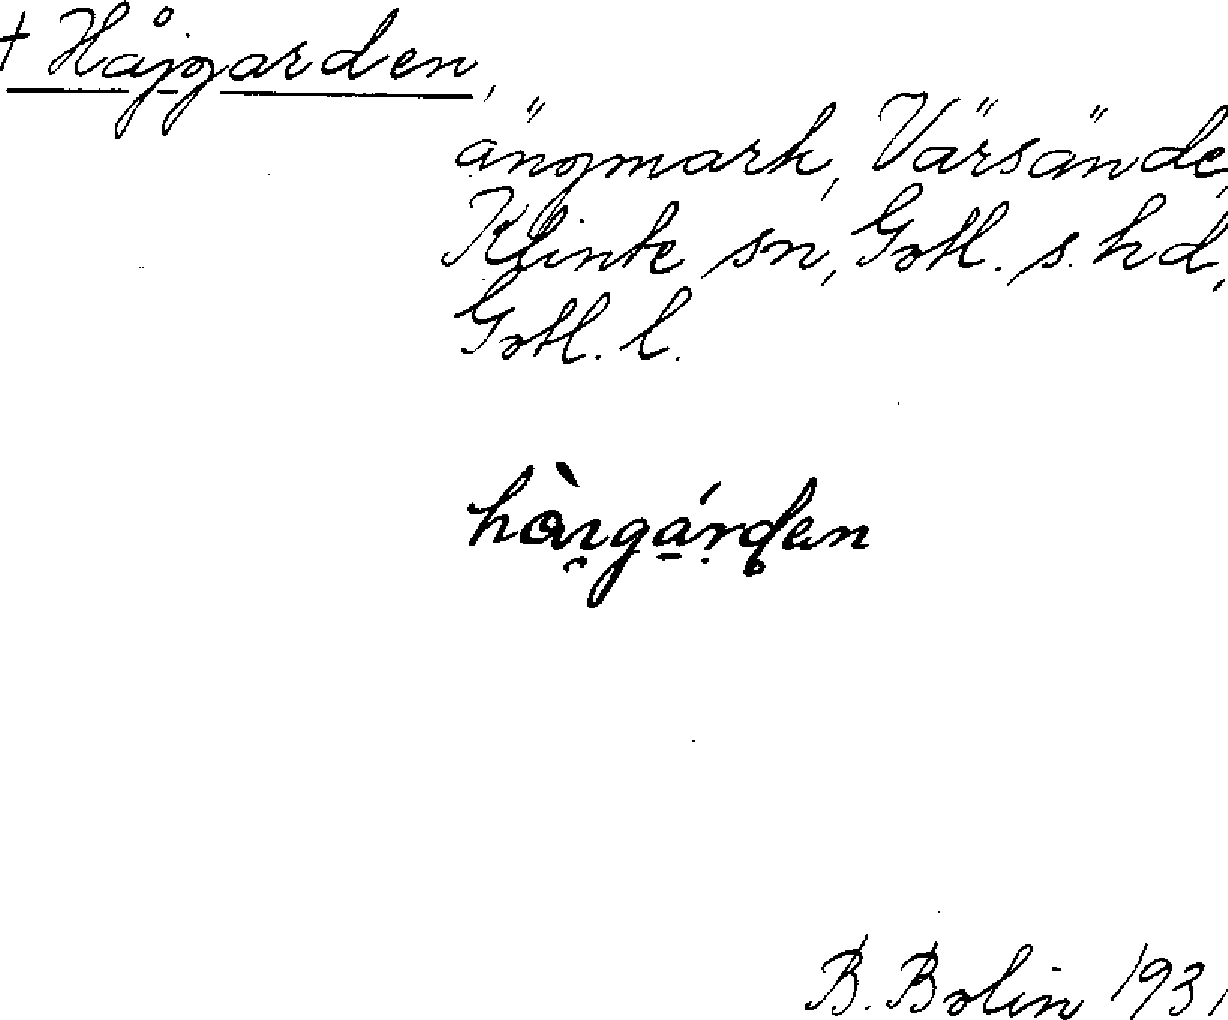 † Håjgarden,
ängmark, Värsände,
Klinte sn, Gotl. s. hd,
Gotl. l.
hàı̯gá̱rden
B. Bolin 1931